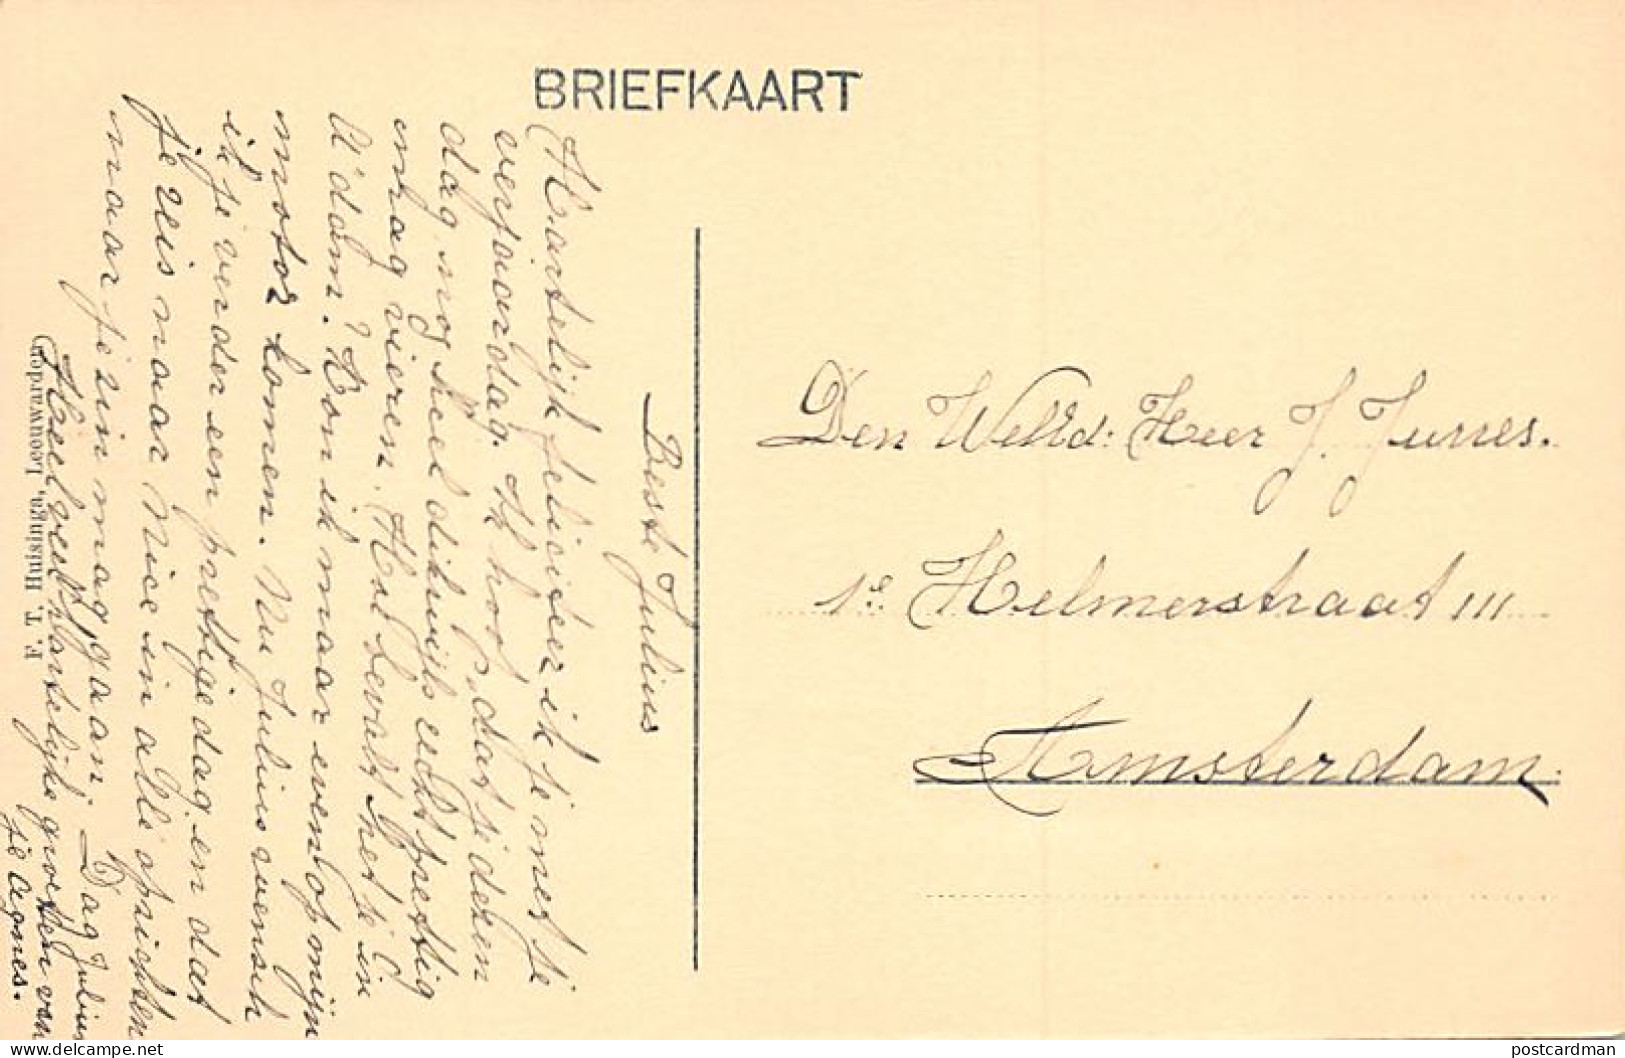 BRIEFKAART
Beste Julius
Hartelijk feliciteer ik je met je
verjaardag. Ik hoop, dat je dezen
dag nog heel dikwijls echt prettig
mag vieren. Hoe bevalt het je in
A'dam? Kon ik maar even op mijn
motor komen. Nu Julius wensch
ik je verder een prettige dag en dat
je reis naar Nice in alle opzichten
naar je zin mag gaan. Dag Julius
Heel veel hartelijke groeten van
je Agnes.
F. T. Huisinga, Leeuwarden
Den WelEd: Heer J. Jurres.
1e Helmerstraat III
Amsterdam
postcardman